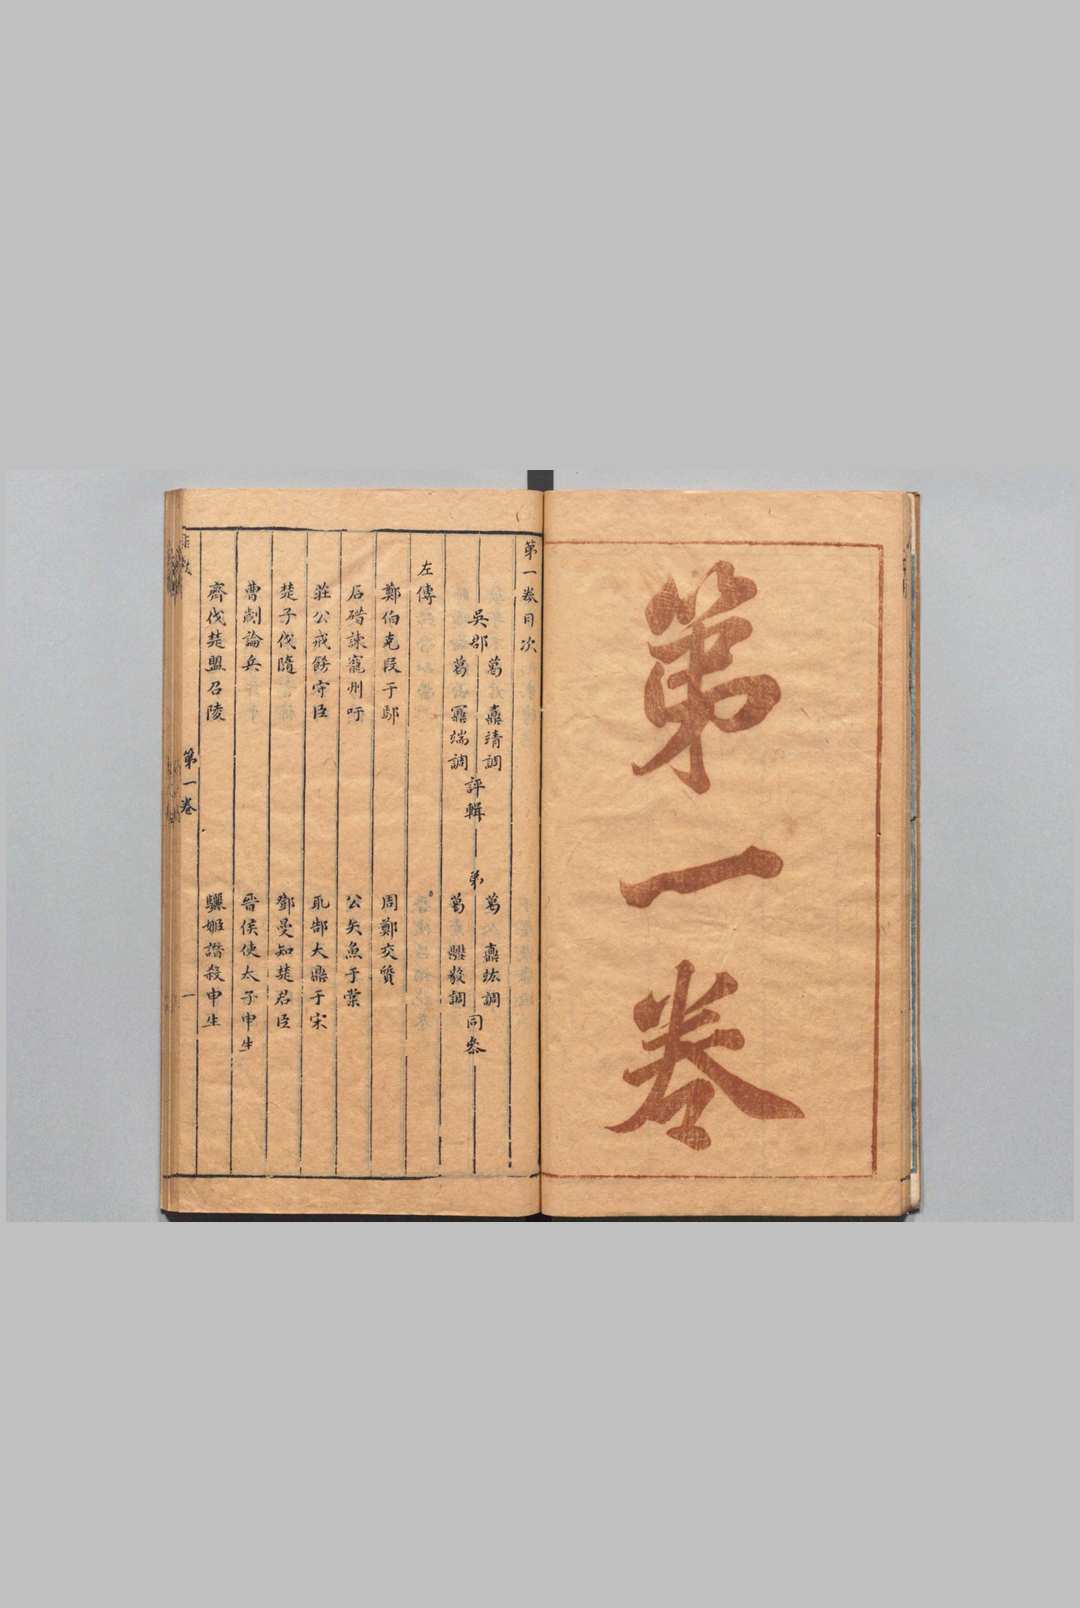 第一卷
第一卷目次
吳郡
葛鼒靖調
葛鼏端調
評輯
弟
葛鼒竑調
葛齇毅調
同參
左傳
鄭伯克段于鄢
周鄭交質
石碏諫寵州吁
公矢魚于棠
莊公戒飭守臣
取郜大鼎于宋
楚子伐隨
鄧曼知楚君臣
曹劌論兵
晉侯使太子申生
齊伐楚盟召陵
驪姬譖殺申生
第一卷
一